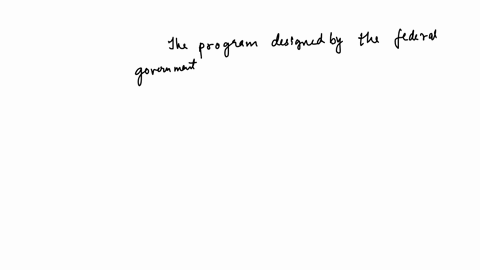 The program designed by the federal
government